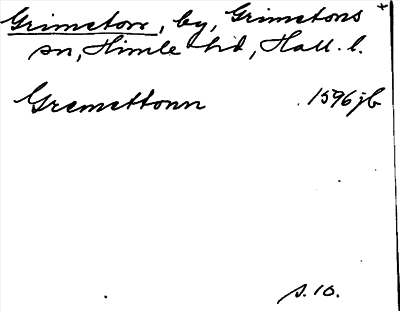 Grimeton, by, Grimetons +
sn, Himle hd, Hall. l.
Gremettonn 1596 jb
s. 10.